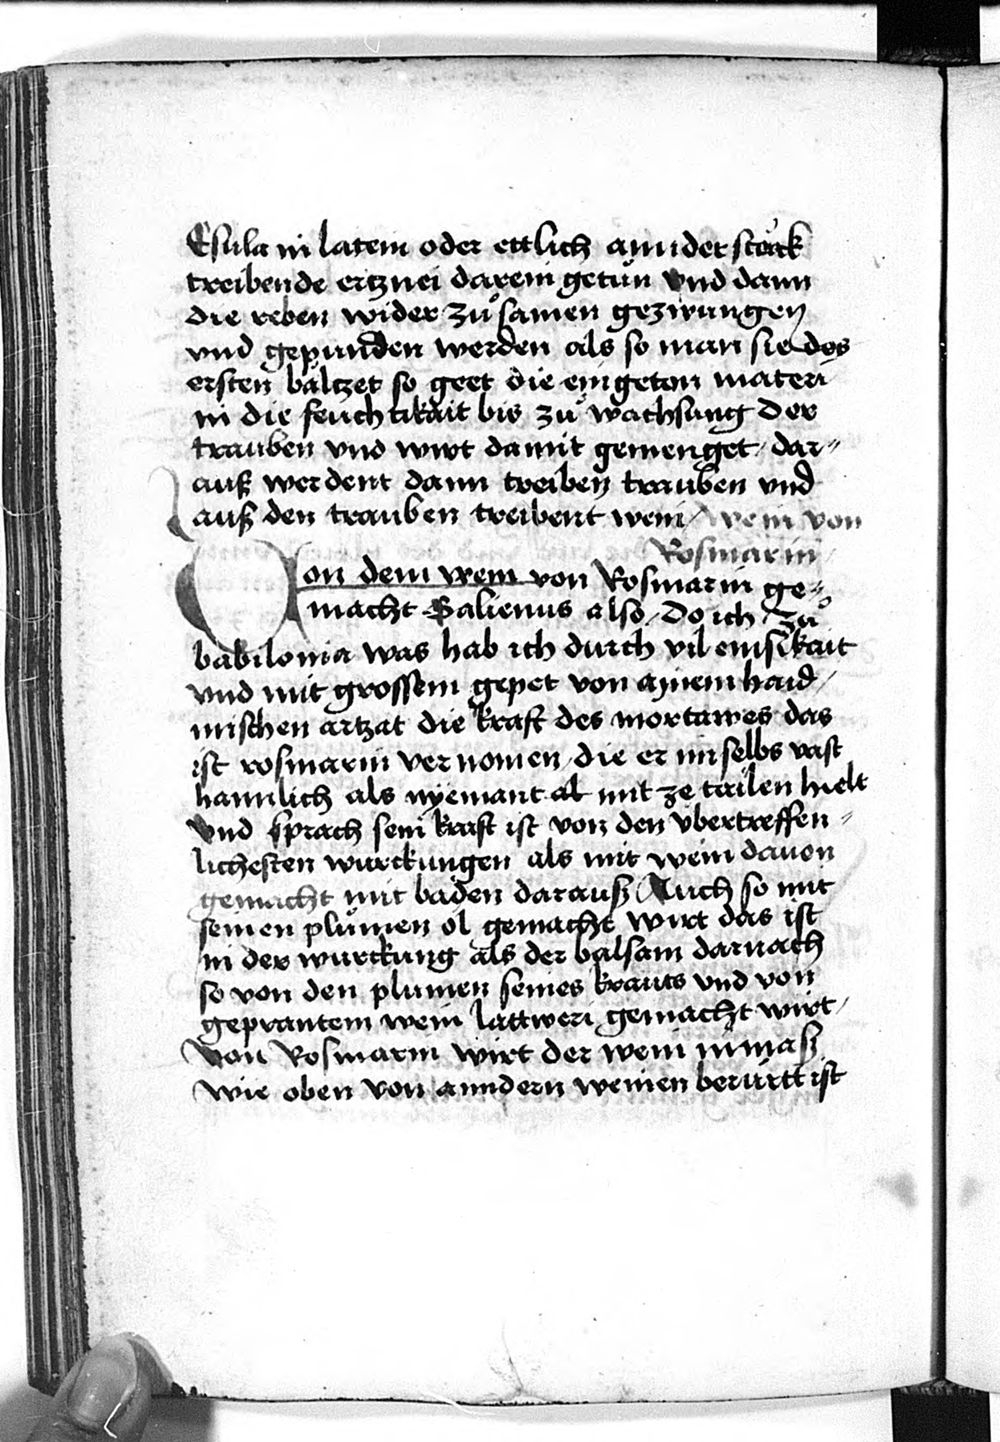 Esula in latein oder ettlich annder starck
treibende ertznei darein getůn vnd dann
die reben wider zůsamen gezwungen
vnd gepunden werden als so man sie des
ersten báltzet so geet die eingeton materi
in die feuchtikait bis zů wachsung der
trauben vnd wirt damit gemenget / dar=
auß werdent dann treiben trauben vnd
auß den trauben treibent wein / wein von
Rosmarin /
Von dem wein von Rosmarin ge=
macht Galienus also / Do ich zů
babilonia was hab ich durch vil emsikait
vnd mit grossem gepet von aynem haid /
nischen artzat die kraft des mortawes das
ist rosmarin vernomen / die er im selbs vast
haimlich als nyemant al mit ze tailen hielt
vnd sprach sein kraft ist von den vbertreffen=
lichesten wurckungen als mit wein davon
gemacht mit baden darauß Auch so mit
seinen plůmen ol gemacht wirt das ist
in der wurckung als der balsam darnach
so von den plumen seines krauts vnd von
geprantem wein lattweri gemacht wirt /
Von Rosmarin wirt der wein inmaß
wie oben von anndern weinen berůrtt ist